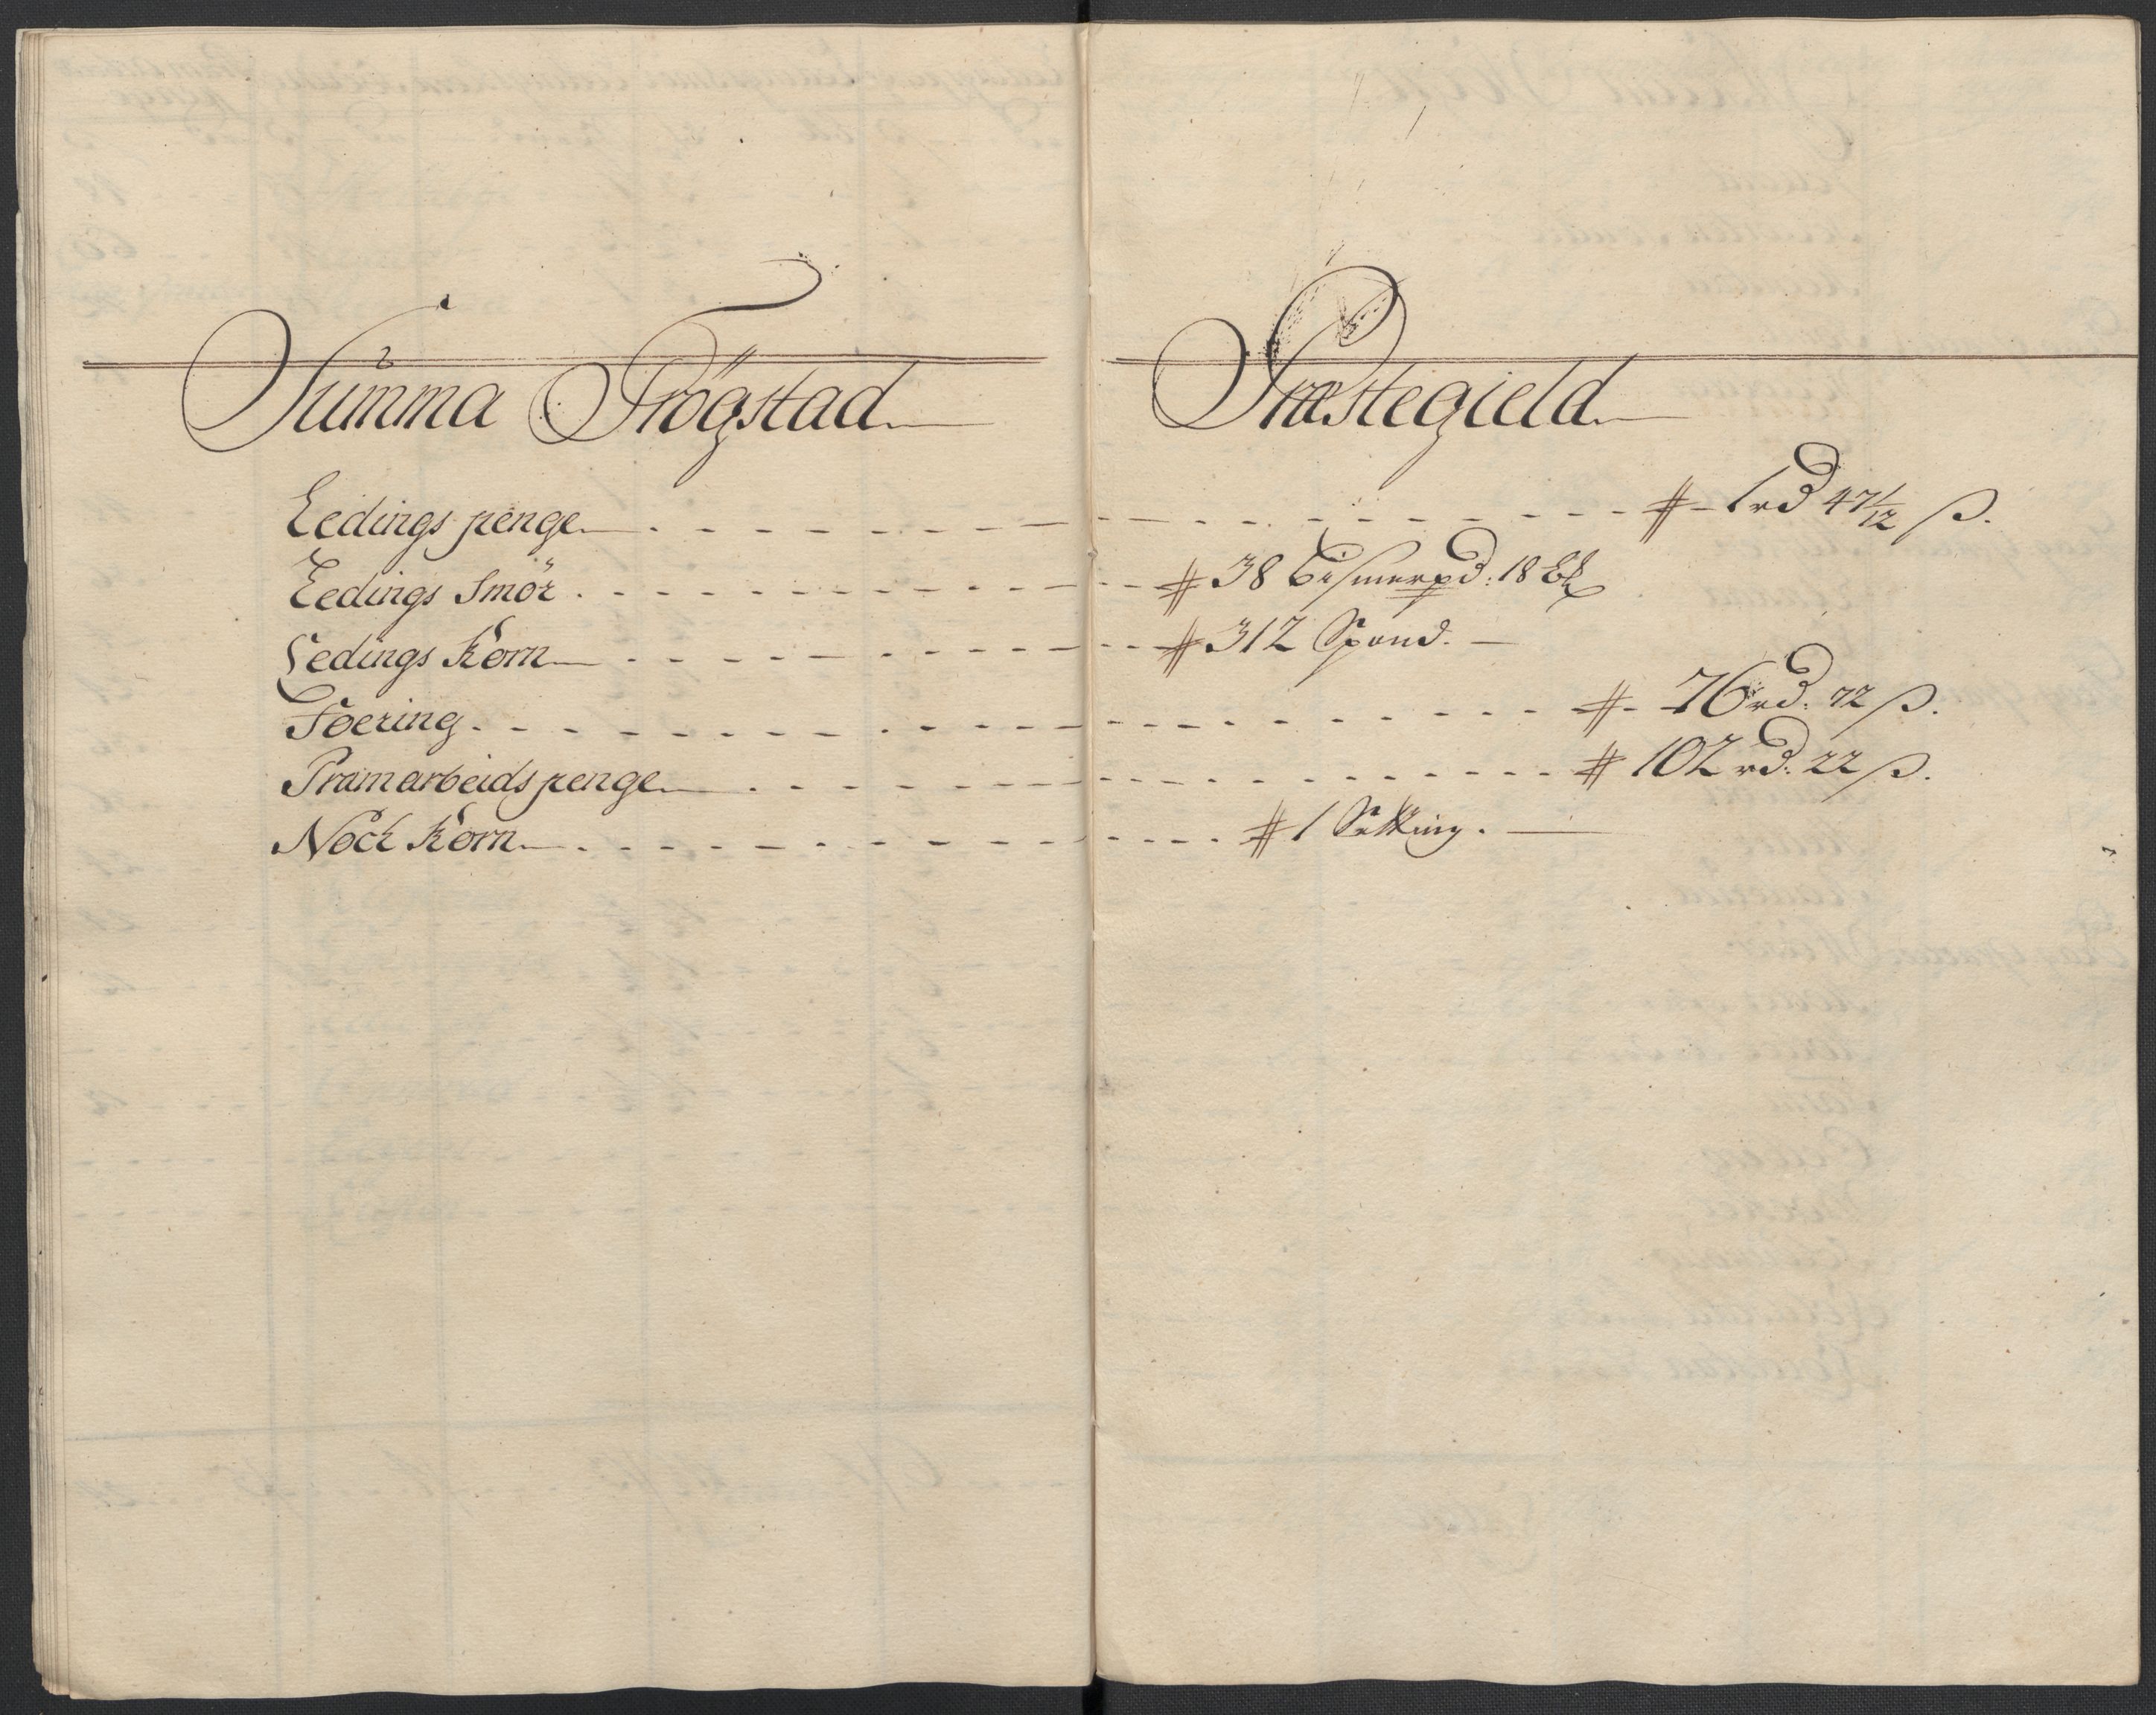 Summa Trögstad Præstegield
Ledings penge # 1 rd 47 1/12 ß.
Ledings Smör # 38 bismerpd: 18 ℔
Ledings Korn # 312 Spand.
Foering # 76 rd. 72 ß.
Pramarbeids penge # 102 rd: 22 ß.
Noch Korn # 1 Setting.